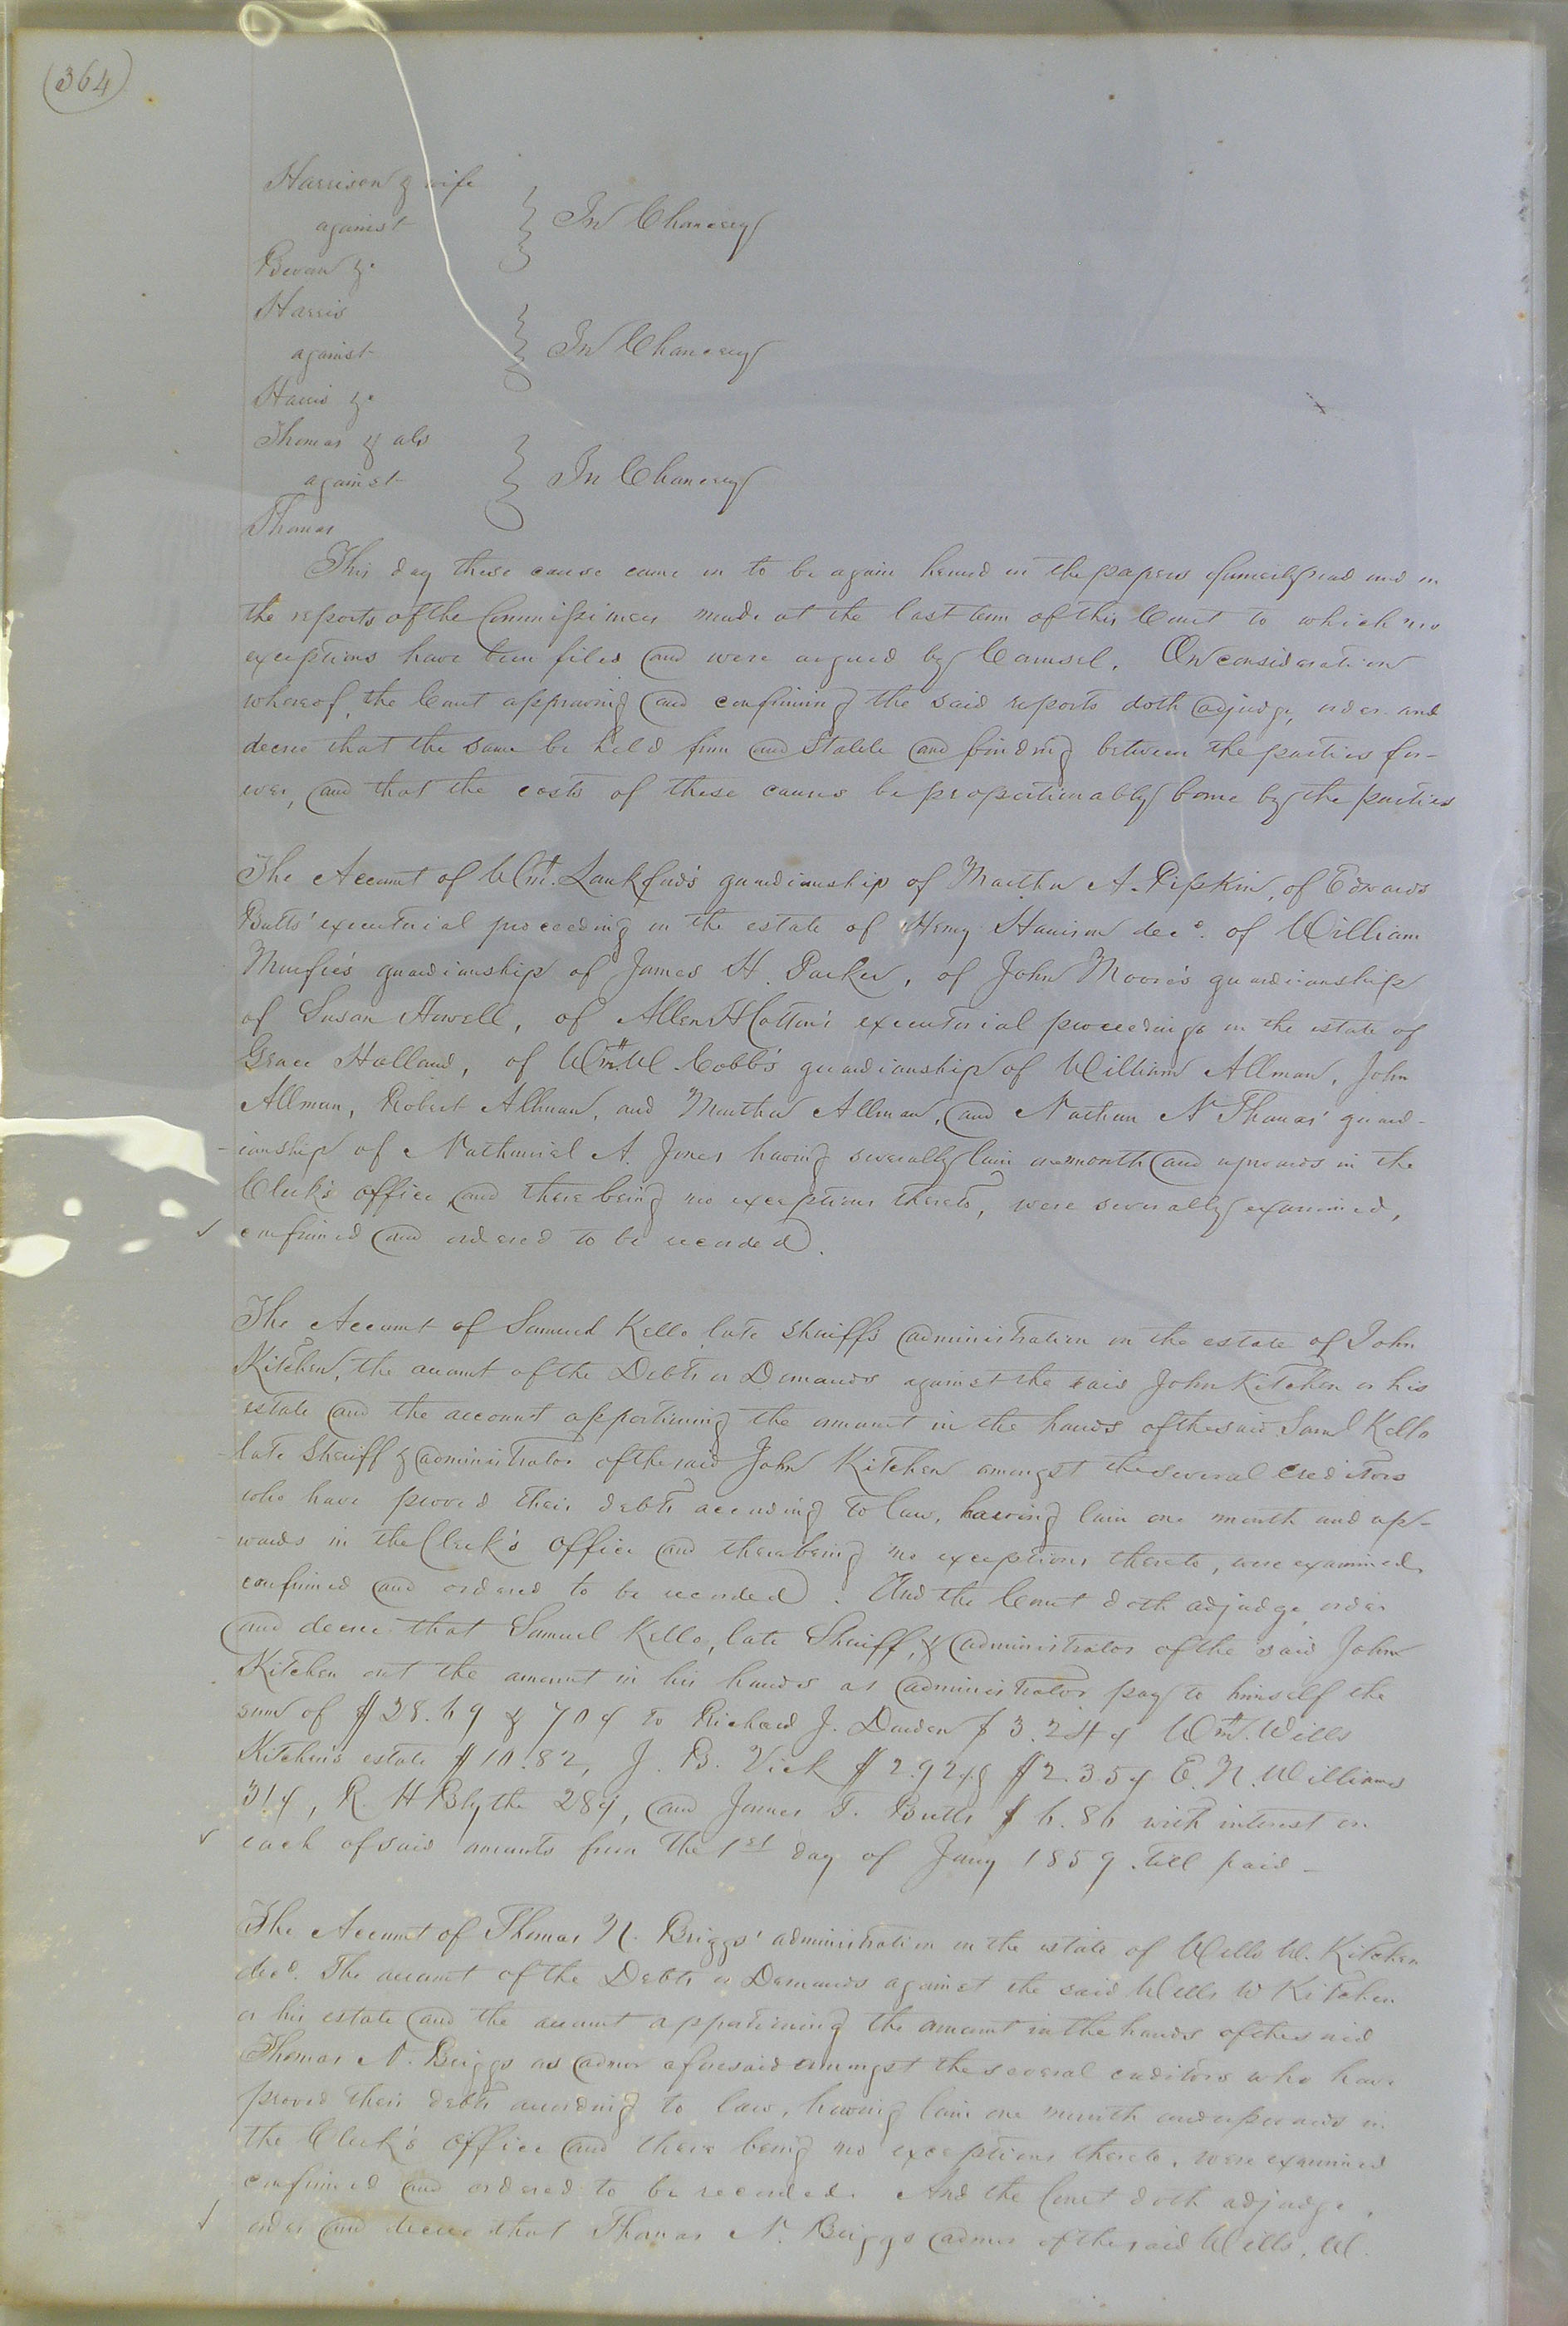 (364)
Harrison & wife
against } In Chancery
Bevan &c
Harris
against } In Chancery
Harris &c
Thomas & als
against } In Chancery
Thomas
This day these cause came on to be again heard on the papers formerly read and on
the reports of the Commissioners made at the last term of this Court to which no
exceptions have been filed and were argued by Counsel. On consideration
whereof, the Court approving and confirming the said reports doth adjudge, order and
decree that the same be held firm and Stable and binding between the parties for-
ever, and that the costs of these causes be proportionably borne by the parties
The Account of Wm. Lankford's guardianship of Martha A. Pipkin, of Edwards
Butts' executorial proceeding on the estate of Henry Harrison decd. of William
Murfee's guardianship of James H. Parker, of John Moore's guardianship
of Susan Howell, of Allen Hatton's executorial proceedings on the estate of
Grace Holland, of Wm. W. Cobb's guardianship of William Allman, John
Allman, Robert Allman, and Martha Allman, and Nathan N Thomas' guard-
-ianship of Nathaniel A. Jones having severally lain one month and upwards in the
Clerk's office and there being no exceptions thereto, were severally examined,
confirmed and ordered to be recorded.
The Account of Samuel Kello late Sheriff's administration on the estate of John
Kitchen, the account of the Debts or Demands against the said John Kitchen or his
estate and the account apportioning the amount in the hands of the said Saml Kello
late Sheriff & administrator of the said John Kitchen amongst the several creditors
who have proved their debts according to law, having lain one month and up-
-wards in the Clerk's Office and there being no exceptions thereto, were examined,
confirmed and ordered to be recorded. And the Court doth adjudge, order
and decree that Samuel Kello, late Sheriff, & administrator of the said John
Kitchen out the amount in his hands as administrator pay to himself the
sum of $28.69 & 70¢ to Richard J. Darden $3.24¢ Wm. Wills
Kitchen's estate $10.82, J. B. Vick $2.92¢ & $2.35¢ E. N. Williams
31¢, R. H Blythe 28¢, and James T. Butts $6.86 with interest on
each of said amounts from the 1st day of Jany 1859 till paid -
The Account of Thomas N. Briggs' administration on the estate of Wills W. Kitchen
decd. The account of the Debts or Demands against the said Wills W Kitchen
or his estate and the account apportioning the amount in the hands of the said
Thomas N. Briggs as admor aforesaid amongst the several creditors who have
proved their debts according to law, having lain one month and upwards in
the Clerk's Office and there being no exceptions thereto, were examined
confirmed and ordered to be recorded. And the Court doth adjudge,
order and decree that Thomas N. Briggs admor of the said Wills. W.